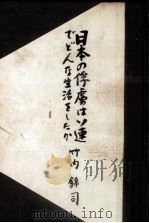 日本の俘虜はソ連
でどんな生活をしたか
竹内錦司